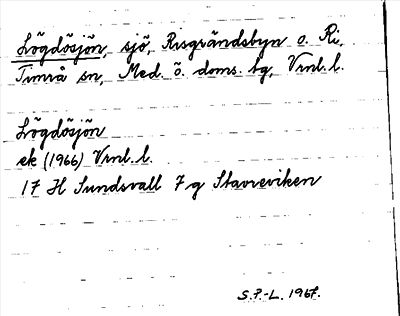 Lögdösjön, sjö, Risgrändsbyn o. Ri,
Timrå sn, Med. ö. doms. bg, Vrnl. l.
Lögdösjön
ek (1966) Vrnl. l.
17 H Sundsvall 7 g Stavreviken
S.P.-L. 1967.